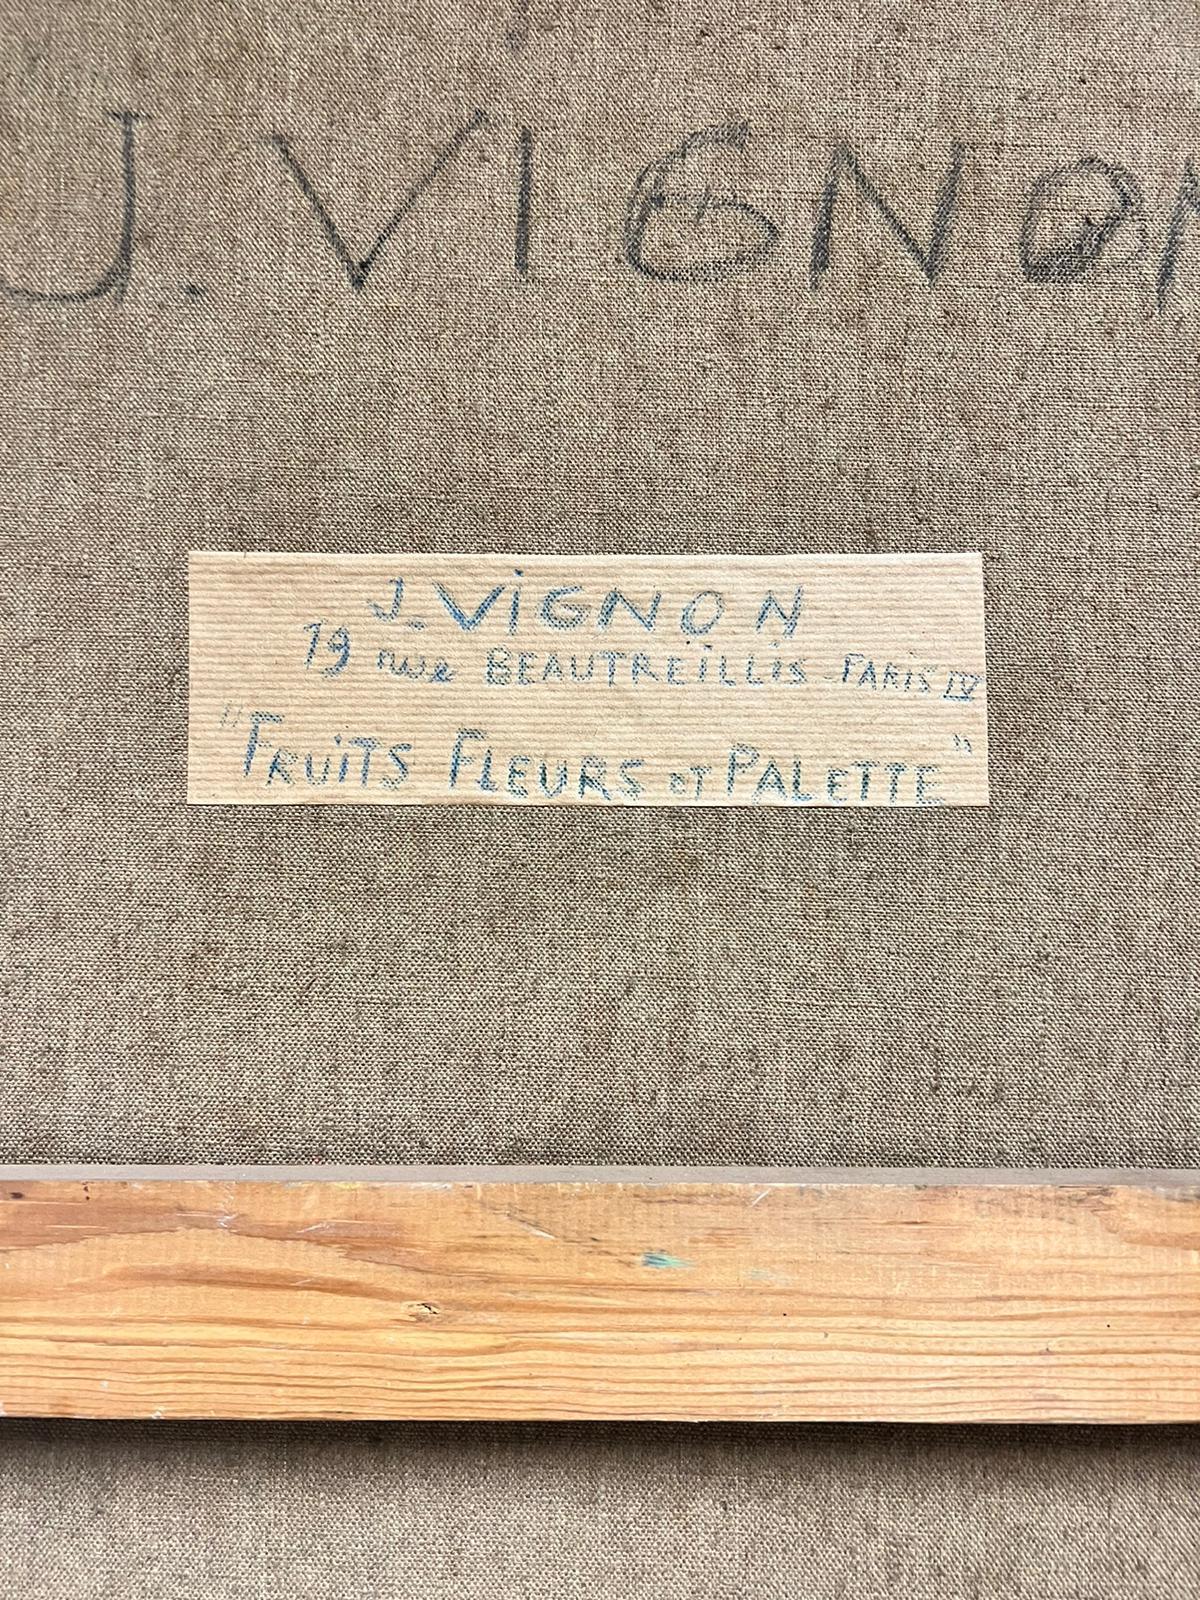 J. VIGNON
J. ViGNON
19 rue BEAUTREiLLiS - PARiS IV
"FRUiTS FLEURS et PALETTE"